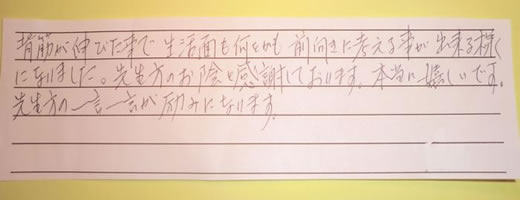 背筋が伸びた事で生活面も何事も前向きに考える事が出来る様に
になりました。先生方のお陰と感謝しております。本当に嬉しいです。
先生方の一言一言が励みになります。